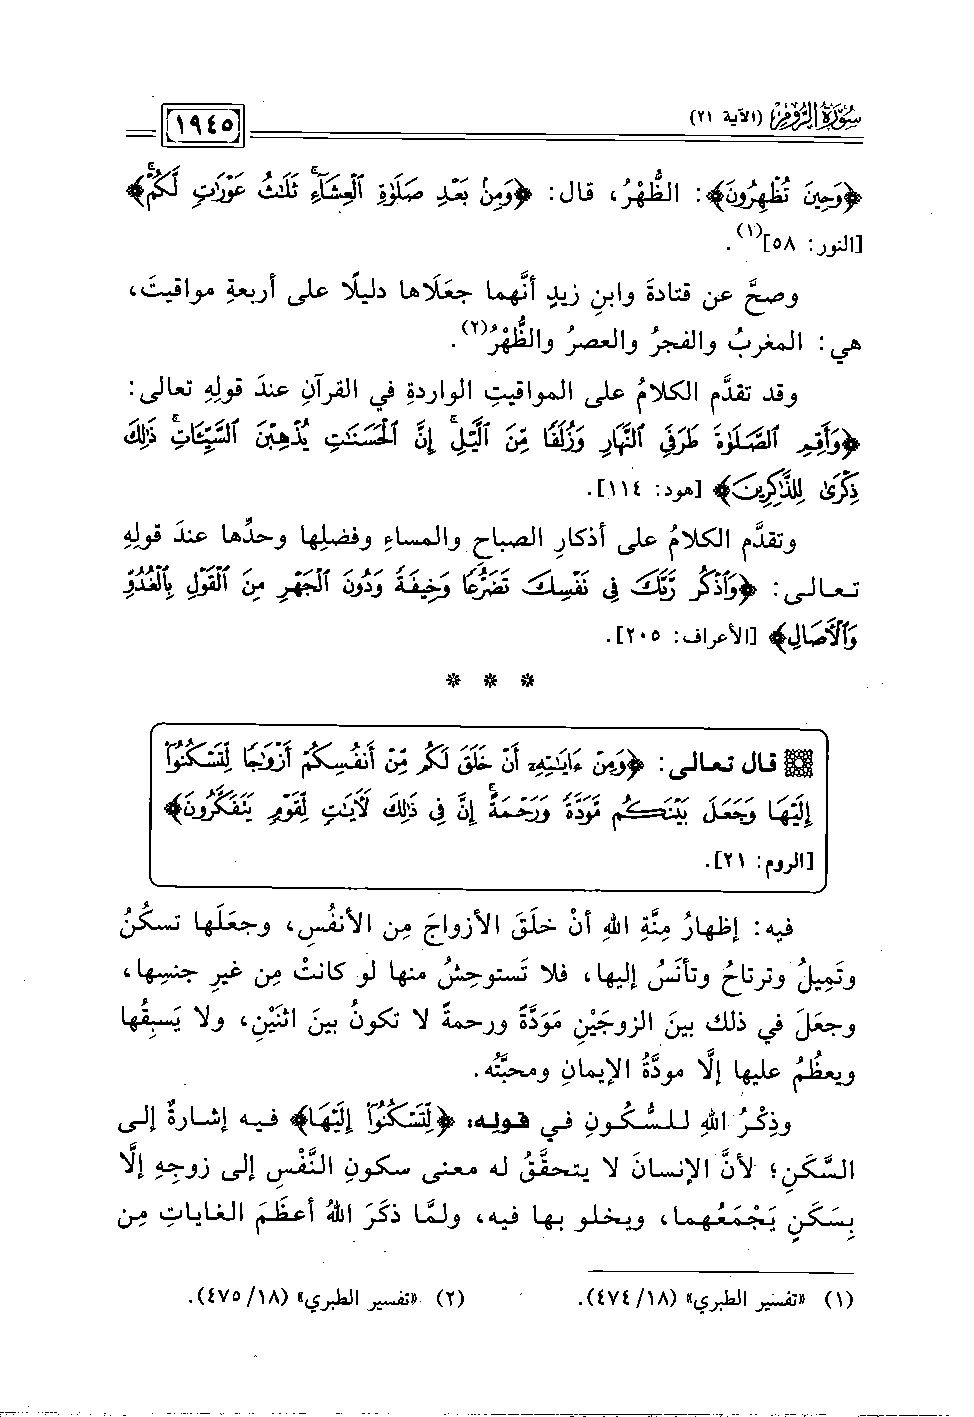 سورة الروم (الآية ٢١)
١٩٤٥
﴿وَحِينَ تُظْهِرُونَ﴾: الظُّهْرُ، قال: ﴿وَمِنۢ بَعْدِ صَلَوٰةِ ٱلْعِشَآءِ ۚ ثَلَٰثُ عَوْرَٰتٍ لَّكُمْ ۚ﴾
[النور: ٥٨](١).
وصحَّ عن قتادةَ وابنِ زيدٍ أنَّهما جعَلَاها دليلًا على أربعةِ مواقيتَ،
هي: المغربُ والفجرُ والعصرُ والظُّهْرُ(٢).
وقد تقدَّم الكلامُ على المواقيتِ الواردةِ في القرآنِ عندَ قولِهِ تعالى:
﴿وَأَقِمِ ٱلصَّلَوٰةَ طَرَفَىِ ٱلنَّهَارِ وَزُلَفًا مِّنَ ٱلَّيْلِ ۚ إِنَّ ٱلْحَسَنَٰتِ يُذْهِبْنَ ٱلسَّيِّـَٔاتِ ۚ ذَٰلِكَ
ذِكْرَىٰ لِلذَّٰكِرِينَ﴾ [هود: ١١٤].
وتقدَّم الكلامُ على أذكارِ الصباحِ والمساءِ وفضلِها وحدِّها عندَ قولِهِ
تعالى: ﴿وَٱذْكُر رَّبَّكَ فِى نَفْسِكَ تَضَرُّعًا وَخِيفَةً وَدُونَ ٱلْجَهْرِ مِنَ ٱلْقَوْلِ بِٱلْغُدُوِّ
وَٱلْـَٔاصَالِ﴾ [الأعراف: ٢٠٥].
* * *
قال تعالى: ﴿وَمِنْ ءَايَٰتِهِۦٓ أَنْ خَلَقَ لَكُم مِّنْ أَنفُسِكُمْ أَزْوَٰجًا لِّتَسْكُنُوٓا۟
إِلَيْهَا وَجَعَلَ بَيْنَكُم مَّوَدَّةً وَرَحْمَةً ۚ إِنَّ فِى ذَٰلِكَ لَءَايَٰتٍ لِّقَوْمٍ يَتَفَكَّرُونَ﴾
[الروم: ٢١].
فيه: إظهارُ مِنَّةِ اللهِ أنْ خلَقَ الأزواجَ مِن الأنفُسِ، وجعَلَها تسكُنُ
وتَمِيلُ وترتاحُ وتأنَسُ إليها، فلا تَستوحِشُ منها لو كانتْ مِن غيرِ جنسِها،
وجعَلَ في ذلك بينَ الزوجَيْنِ مَوَدَّةً ورحمةً لا تكونُ بينَ اثنَيْنِ، ولا يَسبِقُها
ويعظُمُ عليها إلَّا مودَّةُ الإيمانِ ومحبَّتُه.
وذِكْرُ اللهِ للسُّكُونِ في قوله: ﴿لِّتَسْكُنُوٓا۟ إِلَيْهَا﴾ فيه إشارةٌ إلى
السَّكَنِ؛ لأنَّ الإنسانَ لا يتحقَّقُ له معنى سكونِ النَّفْسِ إلى زوجِهِ إلَّا
بِسَكَنٍ يَجْمَعُهما، ويخلو بها فيه، ولمَّا ذكَرَ اللهُ أعظَمَ الغاياتِ مِن
(١) «تفسير الطبري» (١٨/ ٤٧٤).
(٢) «تفسير الطبري» (١٨/ ٤٧٥).